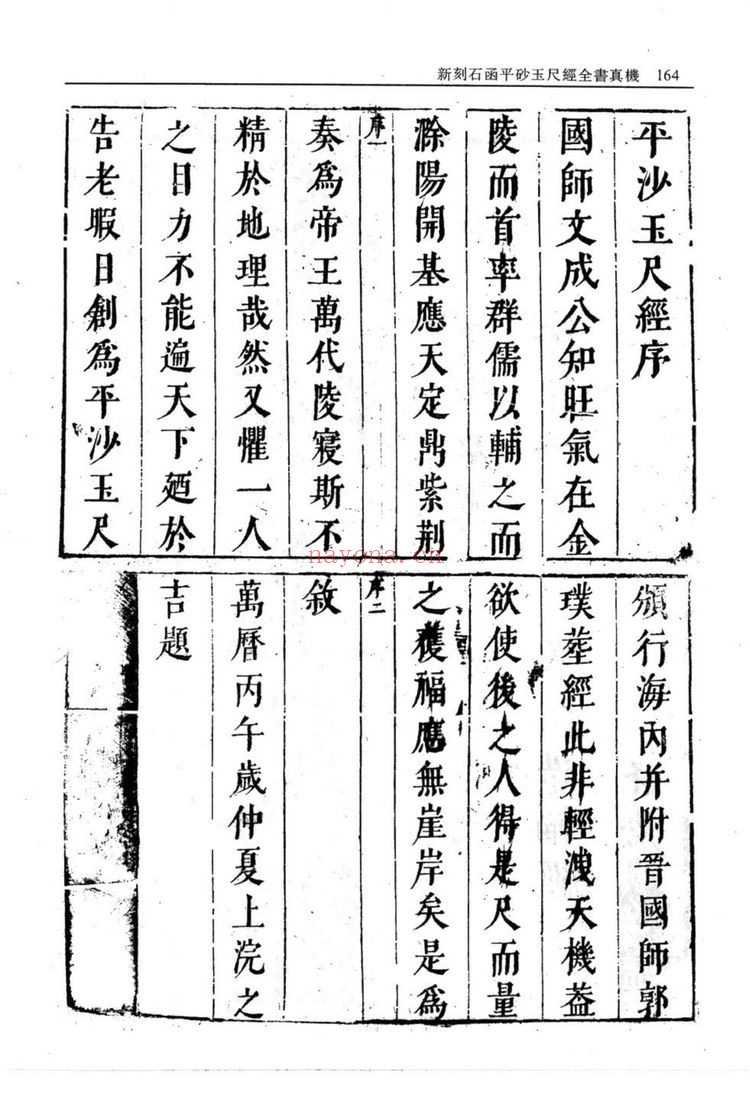 新刻石函平砂玉尺經全書真機 164
平沙玉尺經序
國師文成公知旺氣在金
陵而首率群儒以輔之而
滁陽開基應天定鼎紫荆
序一
奏爲帝王萬代陵寢斯不
精於地理哉然又懼一人
之目力不能遍天下廼於
告老暇日創爲平沙玉尺
頒行海內并附晉國師郭
璞葬經此非輕洩天機葢
欲使後之人得是尺而量
之獲福應無崖岸矣是爲
序二
敘
萬曆丙午歲仲夏上浣之
吉題
nayona.cn